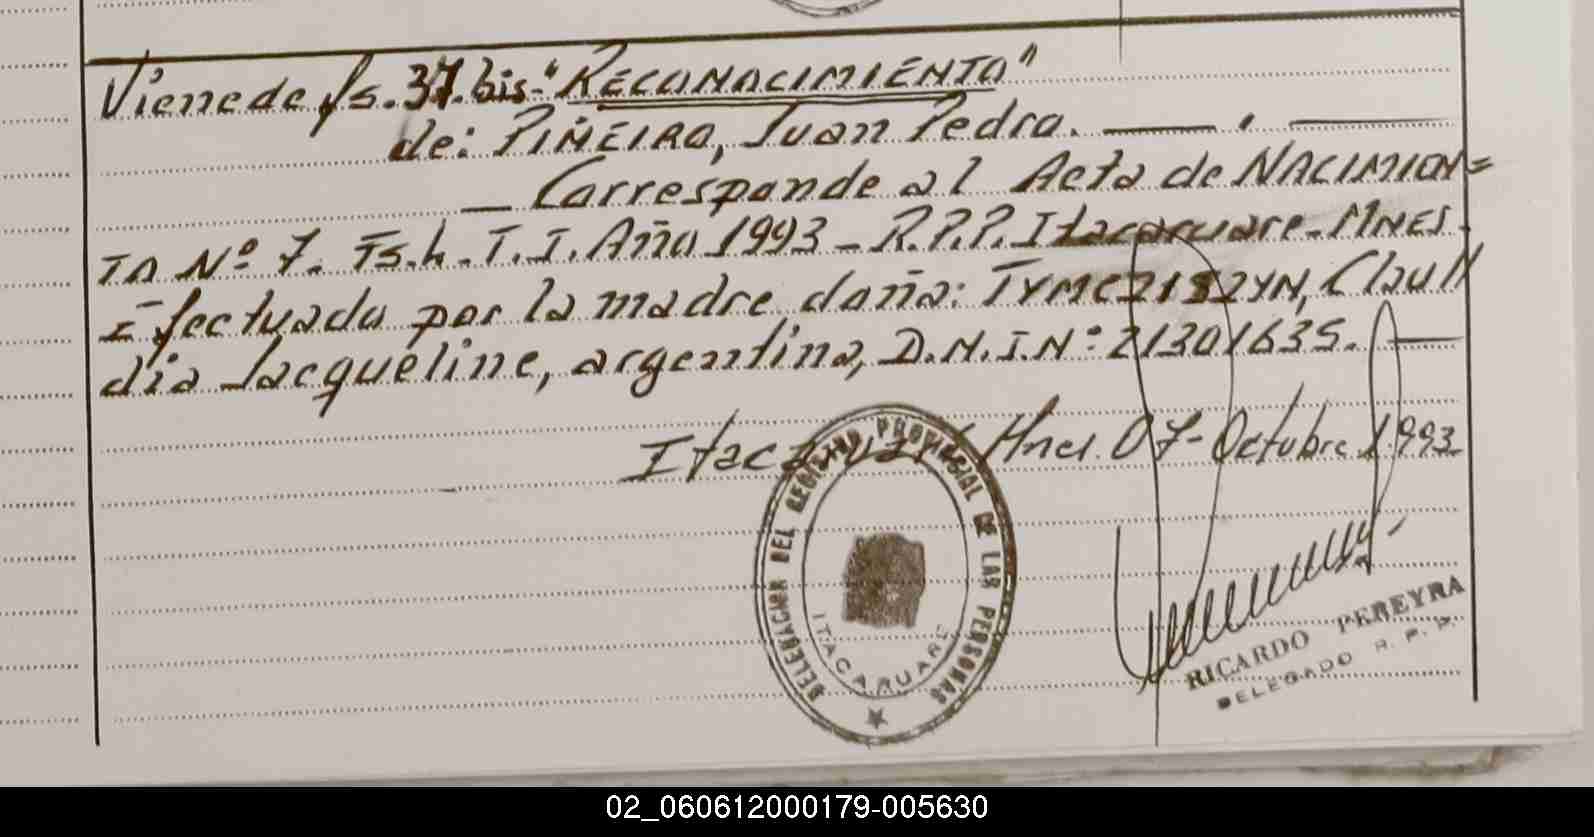 Viene de fs. 37. bis - "RECONOCIMIENTO"
de: PIÑEIRO, Juan Pedro. — . —
— Corresponde al Acta de NACIMIEN=
TO Nº 7. Fs. 4. T. I. Año 1993 - R.P.P. Itacaruare - MNES.
Efectuado por la madre doña: TYMCZISZYN, Clau//
dia Jacqueline, argentina, D.N.I. Nº: 21301635. —
Itacaruare Mnes. 07 - Octubre 1.993.
DELEGACION DEL REGISTRO PROVINCIAL DE LAS PERSONAS
ITACARUARE
RICARDO PEREYRA
DELEGADO R. P. P.
02_060612000179-005630